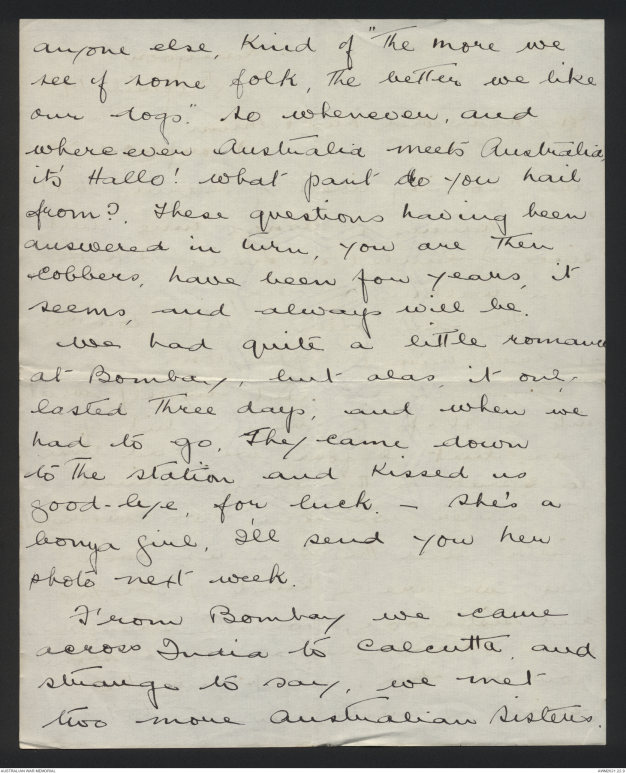 anyone else, Kind of "The more we
see of some folk, the better we like
our dogs." So whenever, and
where ever Australia meets Australia,
it's Hallo! what part do you hail
from?. These questions having been
answered in turn, you are then
cobbers, have been for years, it
seems, and always will be.
We had quite a little romance
at Bombay, but alas, it only
lasted three days, and when we
had to go, They came down
to the station and kissed us
good-bye, for luck. - She's a
bonya girl, I'll send you her
photo next week.
From Bombay we came
across India to Calcutta, and
strange to say, we met
two more Australian Sisters.
AUSTRALIAN WAR MEMORIAL